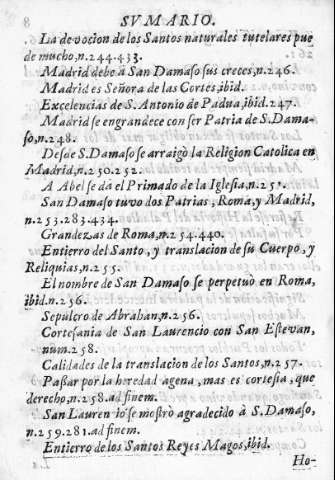 SVMARIO.
La devocion de los Santos naturales tutelares pue
de mucho, n.244.433.
Madrid debe à San Damaso sus creces, n.246.
Madrid es Señora de las Cortes, ibid.
Excelencias de S. Antonio de Padua, ibid.247.
Madrid se engrandece con ser Patria de S.Dama-
so, n.248.
Desde S.Damaso se arraigò la Religion Catolica en
Madrid, n.250.252.
A Abel se dà el Primado de la Iglesia, n.251.
San Damaso tuvo dos Patrias, Roma, y Madrid,
n.253.283.434.
Grandezas de Roma, n.254.440.
Entierro del Santo, y translacion de su Cuerpo, y
Reliquias, n.255.
El nombre de San Damaso se perpetuò en Roma,
ibid.n.256.
Sepulcro de Abrahan, n.256.
Cortesania de San Laurencio con San Estevan,
num.258.
Calidades de la translacion de los Santos, n.257.
Passar por la heredad agena, mas es cortesia, que
derecho, n.258.ad finem.
San Lauren io se mostrò agradecido à S.Damaso,
n.259.281.ad finem.
Entierro de los Santos Reyes Magos, ibid.
Ho-